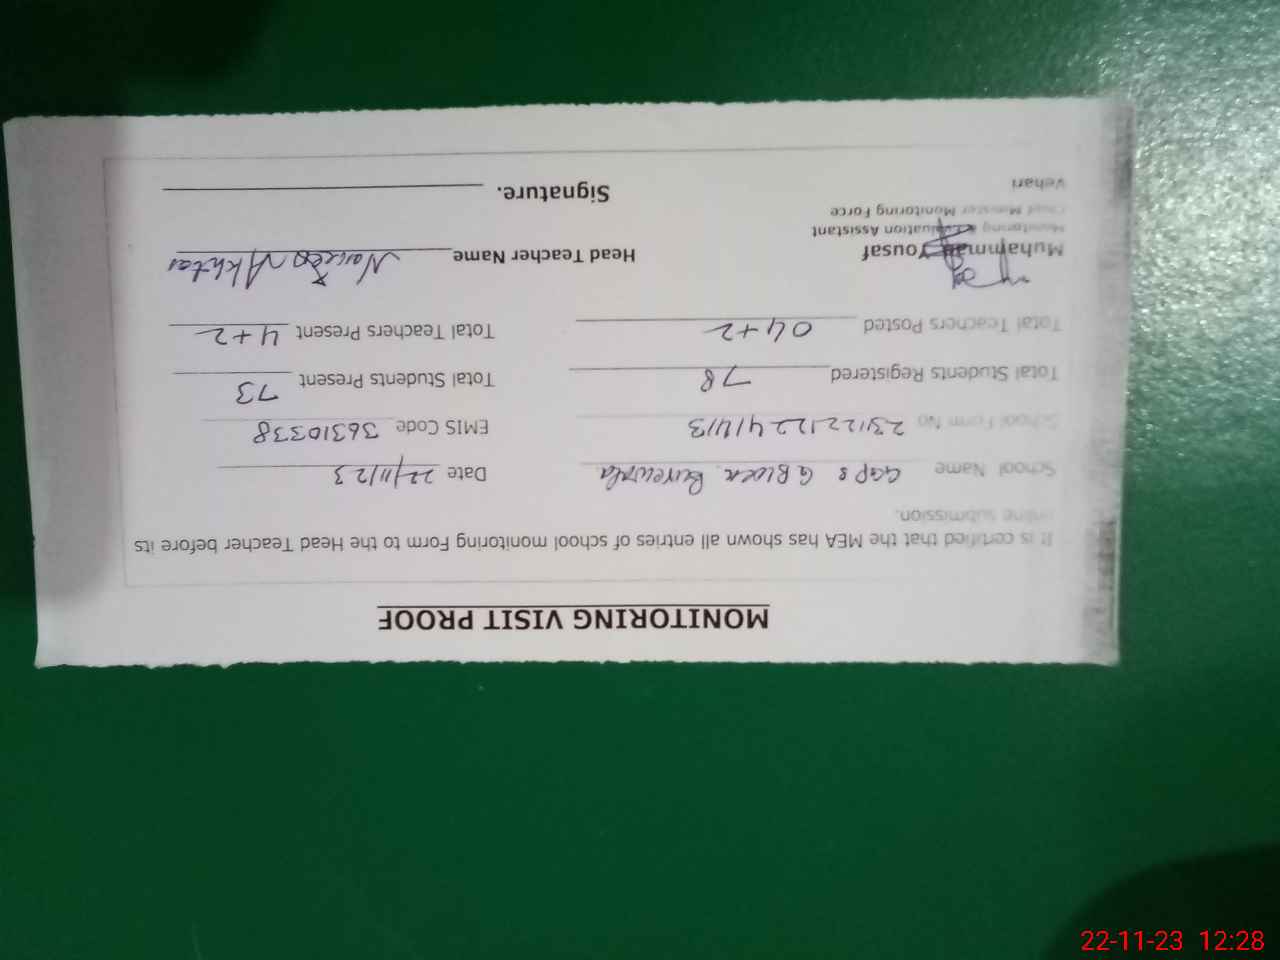 MONITORING VISIT PROOF
It is certified that the MEA has shown all entries of school monitoring form to the Head Teacher before its
online submission.
School Name GGPS G Block Burewala. Date 22/11/23
School Form No EMIS Code 36310338
Total Students Registered 78 Total Students Present 73
Total Teachers Posted 04+2 Total Teachers Present 4+2
Muhammad Yousaf Head Teacher Name Akhtar
Monitoring & Evaluation Assistant
Chief Minister Monitoring Force
Vehari Signature.
22-11-23 12:28